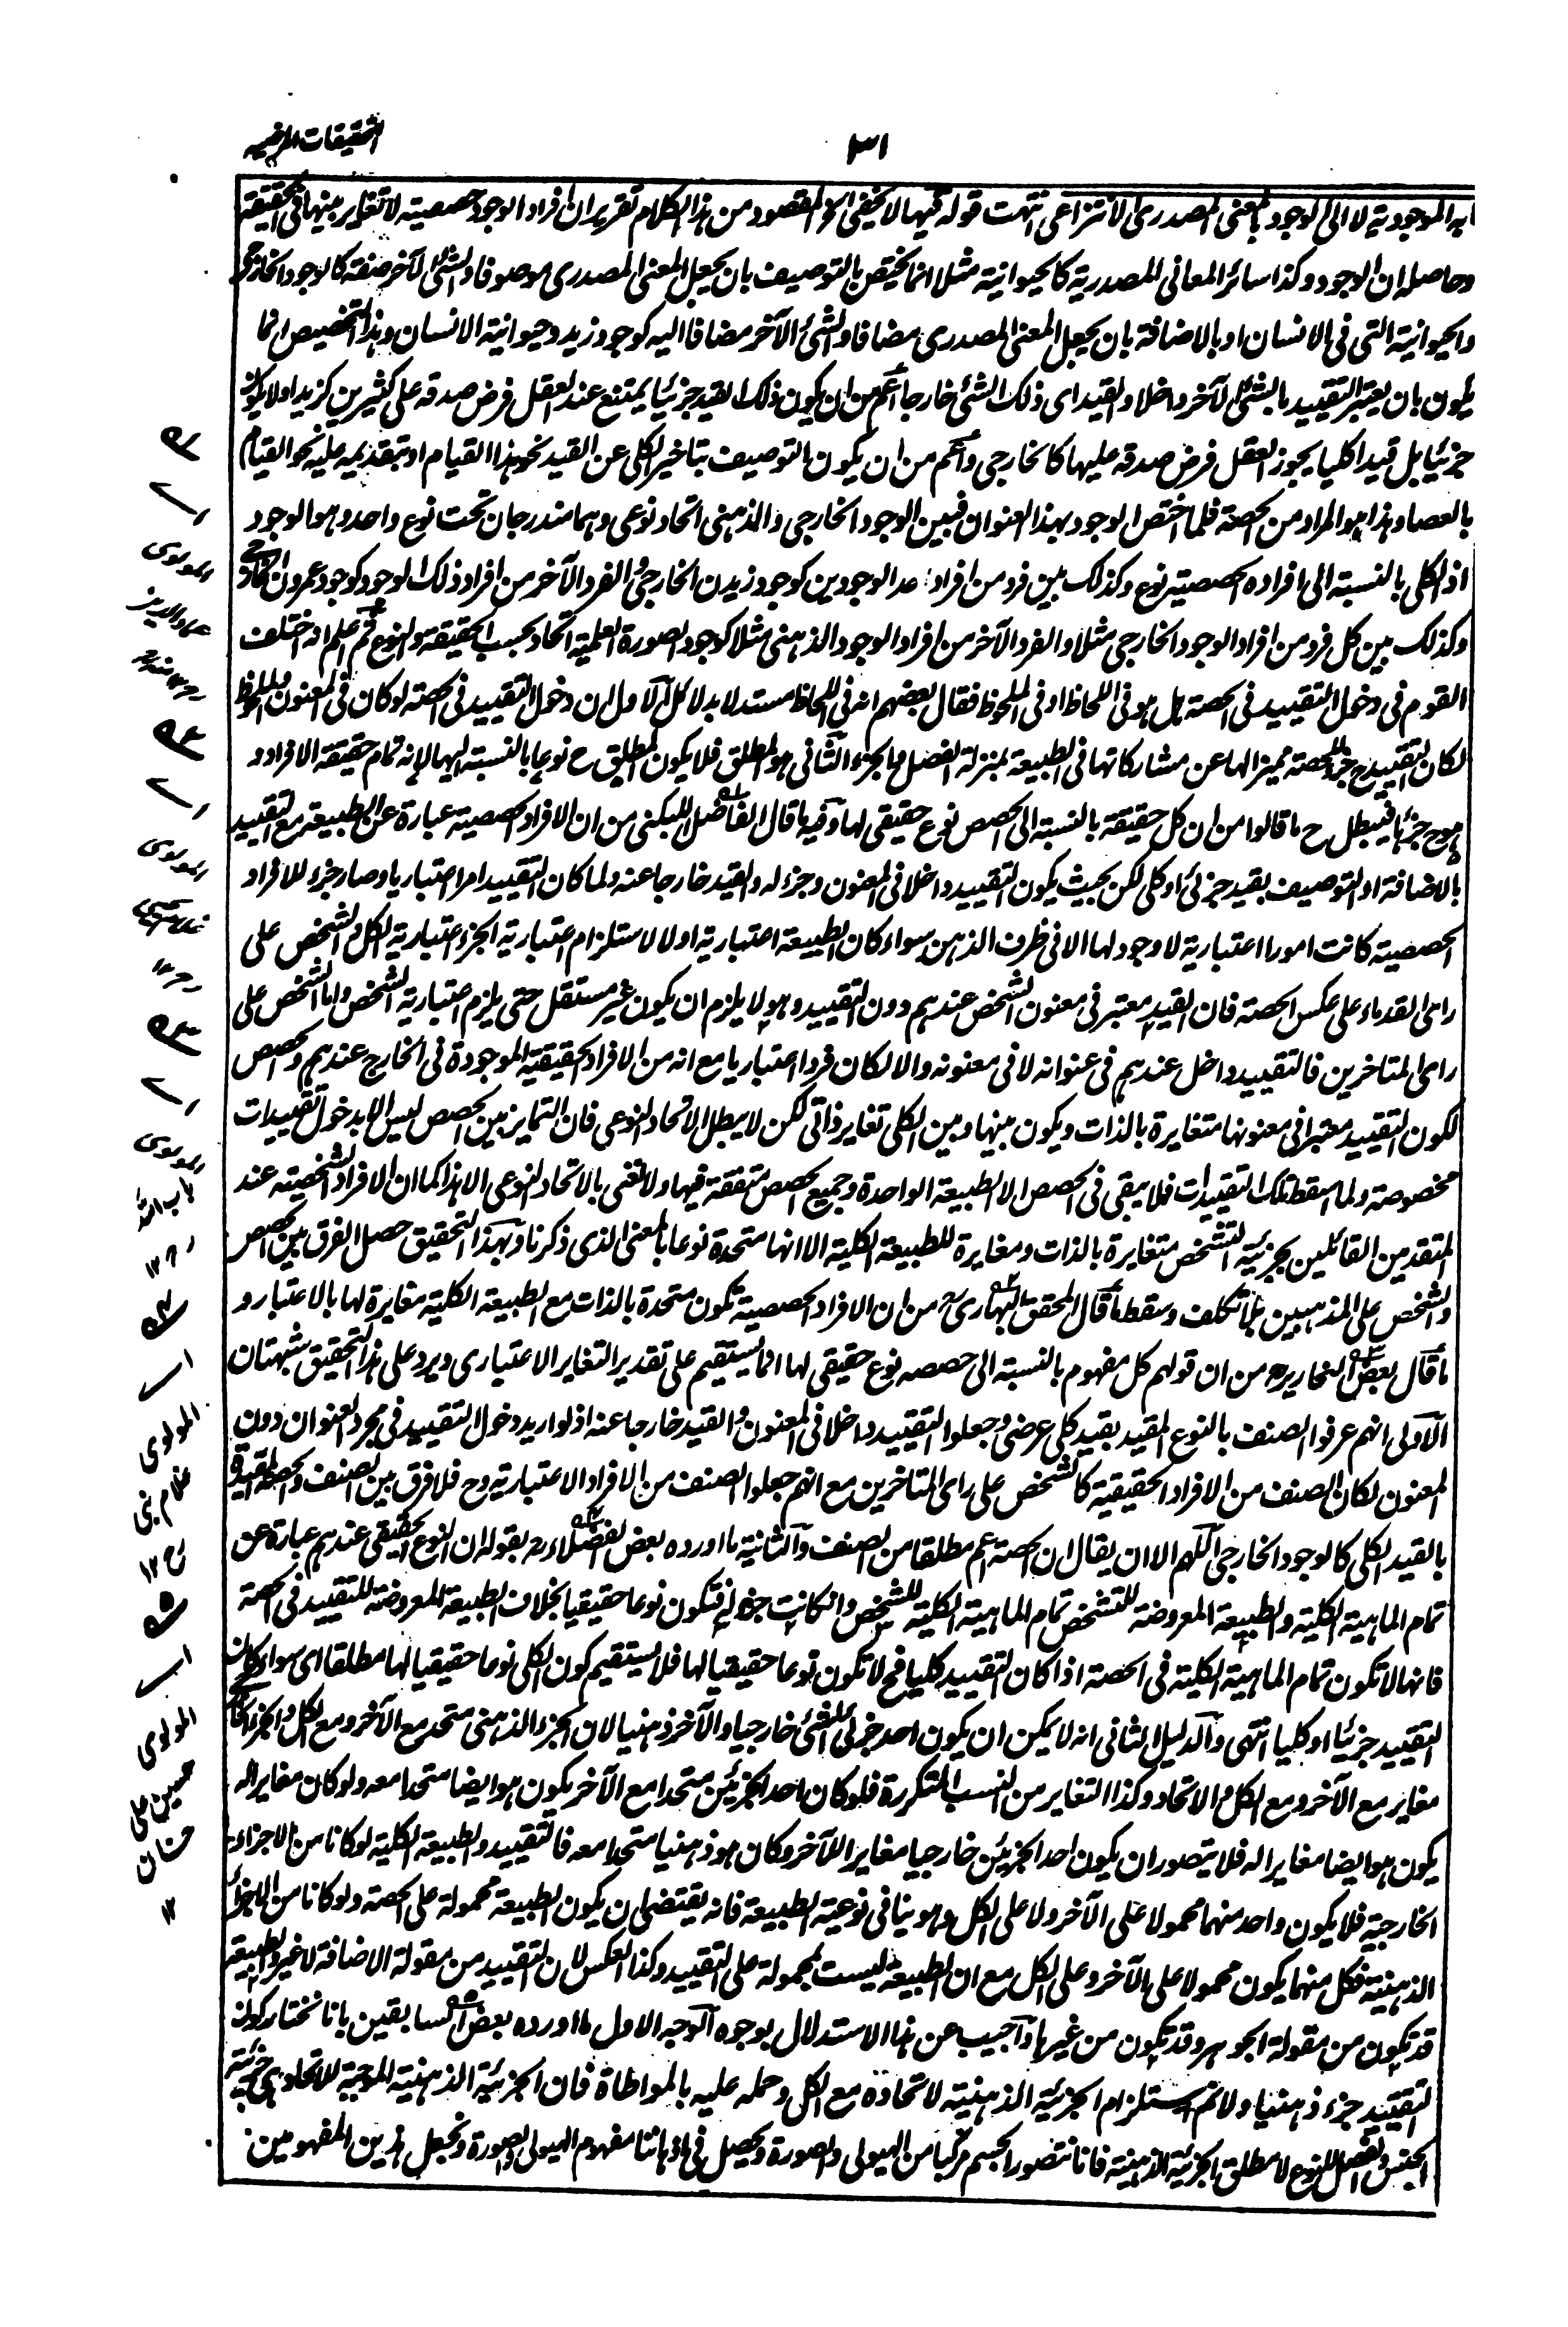 التحقيقات المرضية
٣١
ما به الموجودية لا الى الوجود بالمعنى المصدرى الانتزاعى انتهت قوله فيها لا يخفى الخ المقصود من هذا الكلام تقرير ان افراد الوجود حصصية لا تغاير بينها فى الحقيقة
وحاصله ان الوجود وكذا سائر المعانى المصدرية كالحيوانية مثلا انما يختص بالتوصيف بان يجعل المعنى المصدرى موصوفا والشئ الآخر صفة كالوجود الخارجى
والحيوانية التى فى الانسان او بالاضافة بان يجعل المعنى المصدرى مضافا والشئ الآخر مضافا اليه كوجود زيد وحيوانية الانسان وهذا التخصيص انما
يكون بان يعتبر التقييد بالشئ الآخر داخلا والقيد اى ذلك الشئ خارجا اعم من ان يكون ذلك القيد جزئيا يمتنع عند العقل فرض صدقه على كثيرين كزيد او لا يكون
جزئيا بل قيدا كليا يجوز العقل فرض صدقه عليها كالخارجى واعم من ان يكون بالتوصيف بتاخير الكلى عن القيد نحو هذا القيام او بتقديمه عليه نحو القيام
بالعصا وهذا هو المراد من الحصة فلما اختص الوجود بهذا العنوان فبين الوجود الخارجى والذهنى اتحاد نوعى وهما مندرجان تحت نوع واحد وهو الوجود
اذ الكلى بالنسبة الى افراده الحصصية نوع وكذلك بين فرد من افراد احد الوجودين كوجود زيد فى الخارج والفرد الآخر من افراد ذلك الوجود كوجود عمرو فى الخارج
وكذلك بين كل فرد من افراد الوجود الخارجى مثلا والفرد الآخر من افراد الوجود الذهنى مثلا كوجود الصورة العلمية اتحاد بحسب الحقيقة والنوع ثم اعلم انه اختلف
القوم فى دخول التقييد فى الحصة هل هو فى اللحاظ او فى الملحوظ فقال بعضهم انه فى اللحاظ مستدلا بدلائل الاول ان دخول التقييد فى الحصة لو كان فى المعنون والملحوظ
لكان التقييد ح جزء للحصة مميزا لها عن مشاركاتها فى الطبيعة بمنزلة الفصل والجزء الثانى هو المطلق فلا يكون المطلق ح نوعا بالنسبة اليها لانه تمام حقيقة الافراد و
هو ح جزئها فيبطل ح ما قالوا من ان كل حقيقة بالنسبة الى الحصص نوع حقيقى لها وفيه ما قال الفاضل اللبكنى من ان الافراد الحصصية عبارة عن الطبيعة مع التقييد
بالاضافة او التوصيف بقيد جزئى او كلى لكن بحيث يكون التقييد داخلا فى المعنون وجزء له والقيد خارجا عنه ولما كان التقييد امرا اعتباريا وصار جزء للافراد
الحصصية كانت امورا اعتبارية لا وجود لها الا فى ظرف الذهن سواء كان الطبيعة اعتبارية اولا لاستلزام اعتبارية الجزء اعتبارية الكل والشخص على
راى القدماء على عكس الحصة فان القيد معتبر فى معنون الشخص عندهم دون التقييد وهو لا يلزم ان يكون غير مستقل حتى يلزم اعتبارية الشخص واما الشخص على
راى المتاخرين فالتقييد داخل عندهم فى عنوانه لا فى معنونه والا لكان فردا اعتباريا مع انه من الافراد الحقيقية الموجودة فى الخارج عندهم والحصص
لكون التقييد معتبرا فى معنونها متغايرة بالذات ويكون بينها وبين الكلى تغاير ذاتى لكن لا يبطل الاتحاد النوعى فان التمايز بين الحصص ليس الا بدخول تقييدات
مخصوصة ولما اسقط تلك التقييدات فلا يبقى فى الحصص الا الطبيعة الواحدة وجميع الحصص متفقة فيها ولا نعنى بالاتحاد النوعى الا هذا كما ان الافراد الشخصية عند
المتقدمين القائلين بجزئية التشخص متغايرة بالذات ومغايرة للطبيعة الكلية الا انها متحدة نوعا بالمعنى الذى ذكرنا وبهذا التحقيق حصل الفرق بين الحصص
والشخص على المذهبين بلا تكلف وسقط ما قال المحقق البهارى رح من ان الافراد الحصصية تكون متحدة بالذات مع الطبيعة الكلية مغايرة لها بالاعتبار و
ما قال بعض النحارير رح من ان قولهم كل مفهوم بالنسبة الى حصصه نوع حقيقى لها انما يستقيم على تقدير التغاير الاعتبارى ويرد على هذا التحقيق شبهتان
الاولى انهم عرفوا الصنف بالنوع المقيد بقيد كلى عرضى وجعلوا التقييد داخلا فى المعنون والقيد خارجا عنه اذ لو اريد دخول التقييد فى مجرد العنوان دون
المعنون لكان الصنف من الافراد الحقيقية كالشخص على راى المتاخرين مع انهم جعلوا الصنف من الافراد الاعتبارية وح فلا فرق بين الصنف والحصة المقيدة
بالقيد الكلى كالوجود الخارجى اللهم الا ان يقال ان الحصة اعم مطلقا من الصنف والثانية ما اورده بعض الفضلاء رح بقوله ان النوع الحقيقى عندهم عبارة عن
تمام الماهية الكلية والطبيعة المعروضة للتشخص تمام الماهية الكلية للشخص وان كانت جزء له فتكون نوعا حقيقيا بخلاف الطبيعة المعروضة للتقييد فى الحصة
فانها لا تكون تمام الماهية الكلية فى الحصة اذا كان التقييد كليا فح لا تكون نوعا حقيقيا لها فلا يستقيم كون الكلى نوعا حقيقيا لها مطلقا اى سواء كان
التقييد جزئيا او كليا انتهى والدليل الثانى انه لا يمكن ان يكون احد جزئى الشئ خارجيا والآخر ذهنيا لان الجزء الذهنى متحد مع الآخر ومع الكل والجزء الخارجى
مغاير مع الآخر ومع الكل والاتحاد وكذا التغاير من النسب المتكررة فلو كان احد الجزئين متحدا مع الآخر يكون هو ايضا متحدا معه ولو كان مغايرا له
يكون هو ايضا مغايرا له فلا يتصور ان يكون احد الجزئين خارجيا مغايرا للآخر وكان هو ذهنيا متحدا معه فالتقييد والطبيعة الكلية لو كانا من الاجزاء
الخارجية فلا يكون واحد منهما محمولا على الآخر ولا على الكل وهو ينافى نوعية الطبيعة فانه يقتضى ان يكون الطبيعة محمولة على الحصة ولو كانا من الاجزاء
الذهنية فكل منهما يكون محمولا على الآخر وعلى الكل مع ان الطبيعة ليست بمحمولة على التقييد وكذا العكس لان التقييد من مقولة الاضافة لا غير والطبيعة
قد تكون من مقولة الجوهر وقد تكون من غيرها واجيب عن هذا الاستدلال بوجوه الوجه الاول ما اورده بعض السابقين بانا نختار كون
التقييد جزء ذهنيا ولا نم استلزام الجزئية الذهنية لاتحاده مع الكل وحمله عليه بالمواطاة فان الجزئية الذهنية الموجبة للاتحاد هى جزئية
الجنس والفصل للنوع لا مطلق الجزئية الذهنية فانا نتصور الجسم مركبا من الهيولى والصورة ويحصل فى اذهاننا مفهوم الهيولى والصورة ونجعل هذين المفهومين
المولوى
عماد الدين
المولوى
المولوى
باب الله
المولوى
غلام نبى
رح ١٢
المولوى
حسين على
خان
١٢